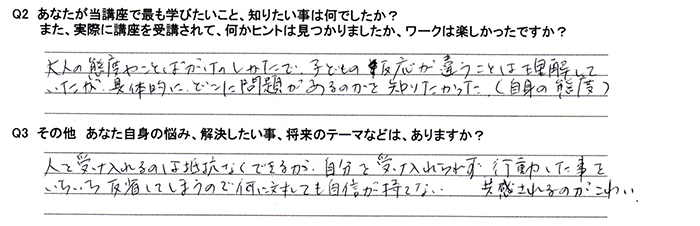 Q2 あなたが当講座で最も学びたいこと、知りたい事は何でしたか？
また、実際に講座を受講されて、何かヒントは見つかりましたか、ワークは楽しかったですか？
大人の態度やことばがけのしかたで、子どもの反応が違うことは理解して
いたが、具体的に、どこに問題があるのかを知りたかった。（自身の態度）
Q3 その他 あなた自身の悩み、解決したい事、将来のテーマなどは、ありますか？
人を受け入れるのは抵抗なくできるが、自分を受け入れられず 行動した事を
いちいち反省してしまうので何に対しても自信が持てない 共感されるのがこわい